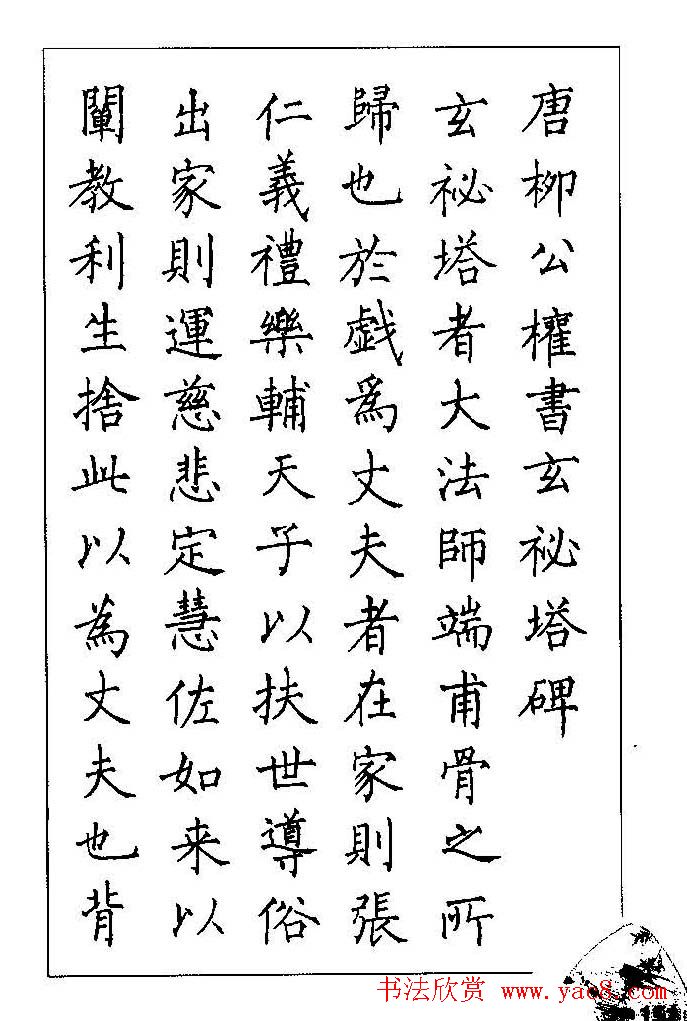 唐柳公權書玄祕塔碑
玄祕塔者大法師端甫骨之所
歸也於戯為丈夫者在家則張
仁義禮樂輔天子以扶世導俗
出家則運慈悲定慧佐如来以
闡教利生捨此以為丈夫也背
书法欣赏 www.yac8.com